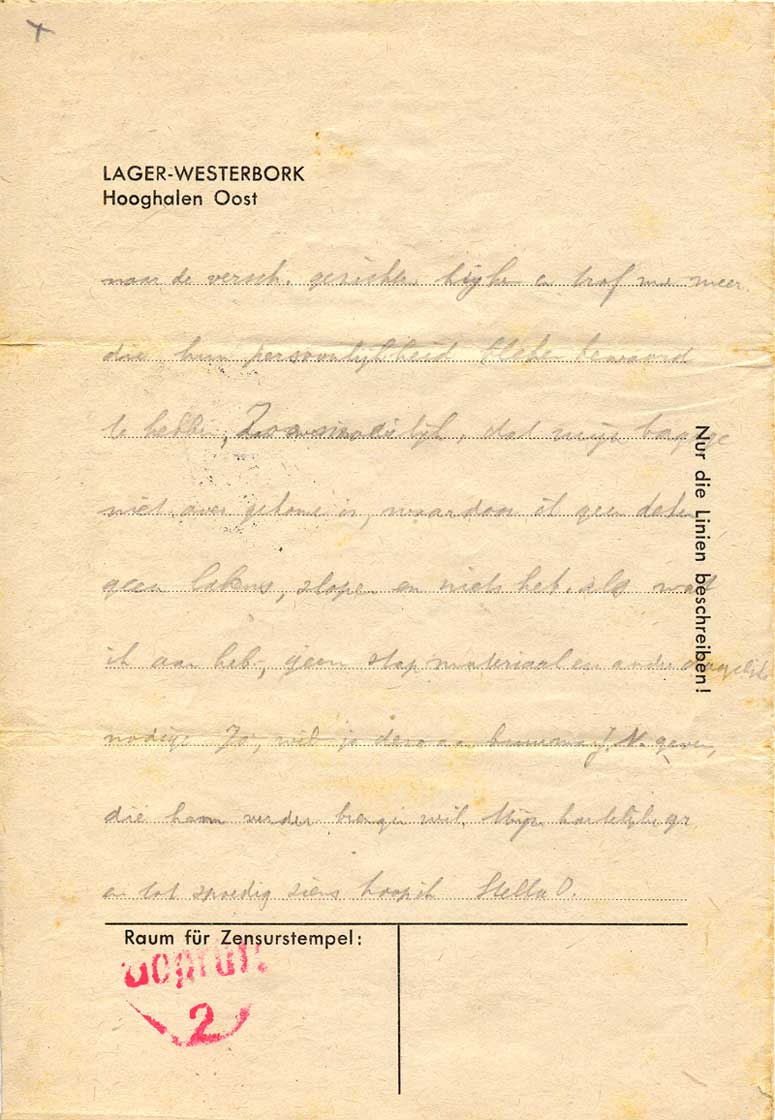 LAGER-WESTERBORK
Hooghalen Oost
naar de versch. gezichten kijken en trof me meer
die hun persoonlijkheid bewaard
te hebben, dat mijn bagage
niet over gekomen is, waardoor ik geen deken
geen lakens, slopen en niets heb, als wat
ik aan heb, geen materiaal en andre
nodige Jo, wil je deze aan geven,
die haar verder wil. Mijn hartelijke gr
en tot spoedig ziens hoop ik Stella O.
Nur die Linien beschreiben!
Raum für Zensurstempel:
2